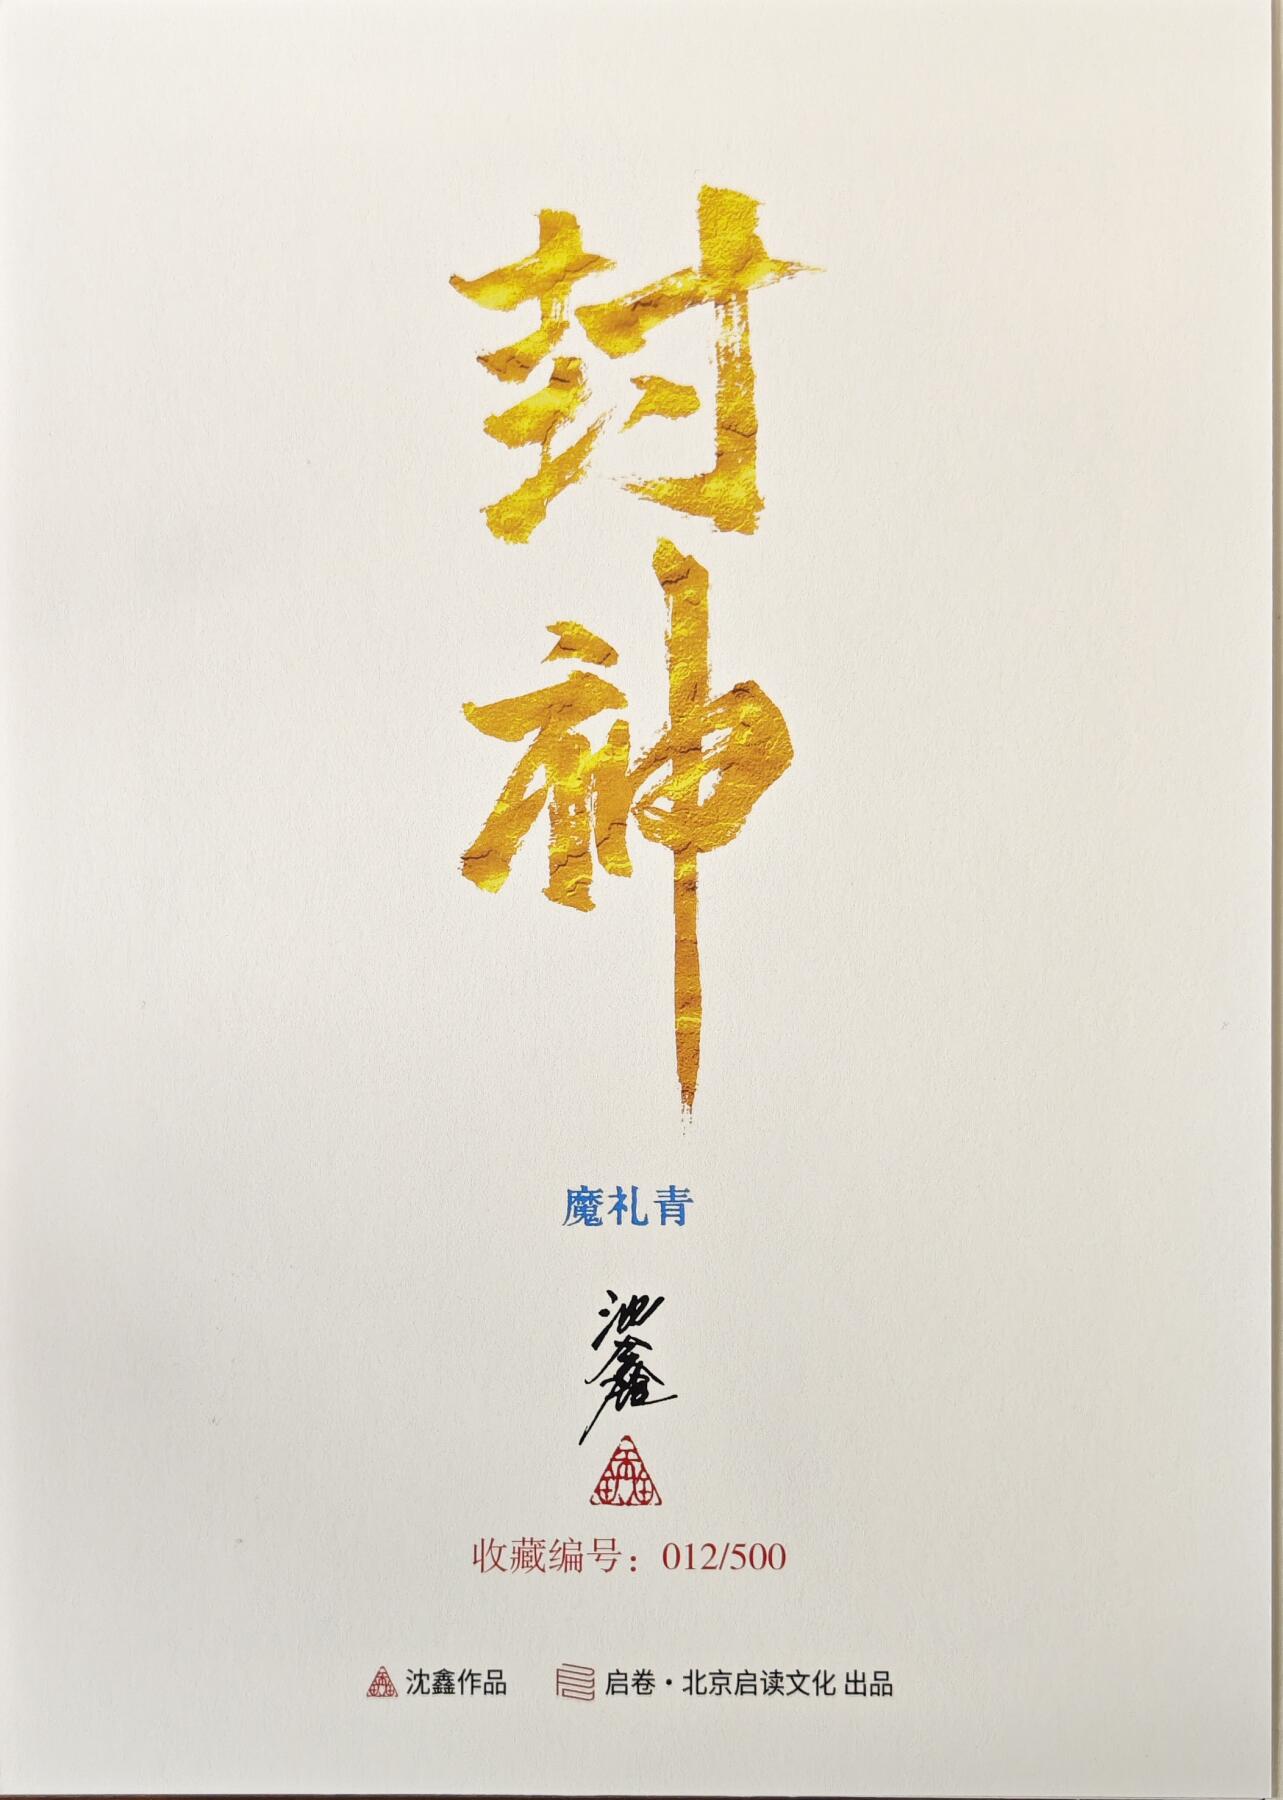 封
神
魔礼青
沈鑫
收藏编号：012/500
沈鑫作品 启卷·北京启读文化 出品